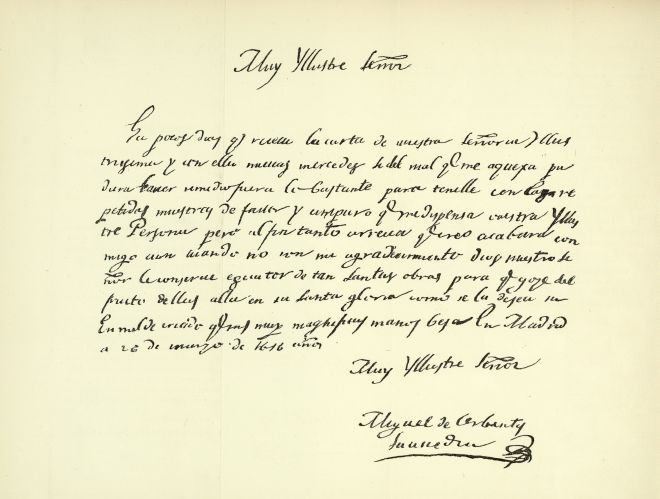 Muy Yllustre Señor
Ha pocos dias q̃ receui la carta de vuestra Señoria Yllus
trisima y con ella nueuas mercedes si del mal q̃ me aquexa pu
diera hauer remedio fuera lo bastante para tenelle con las re
petidas muestras de fauor y amparo q̃ me dispensa vuestra Yllus
tre Persona pero al fin tanto arrecia q̃ creo acabara con
migo aun cuando no con mi agradecimiento dios nuestro se
ñor le conserue egecutor de tan Santas obras para q̃ goze del
fruto dellas alla en su Santa gloria como se la desea su
humilde criado q̃ sus muy magnificas manos besa En Madrid
a 26 de marzo de 1616 años
Muy Yllustre Señor
Miguel de Cerbantes
Saauedra